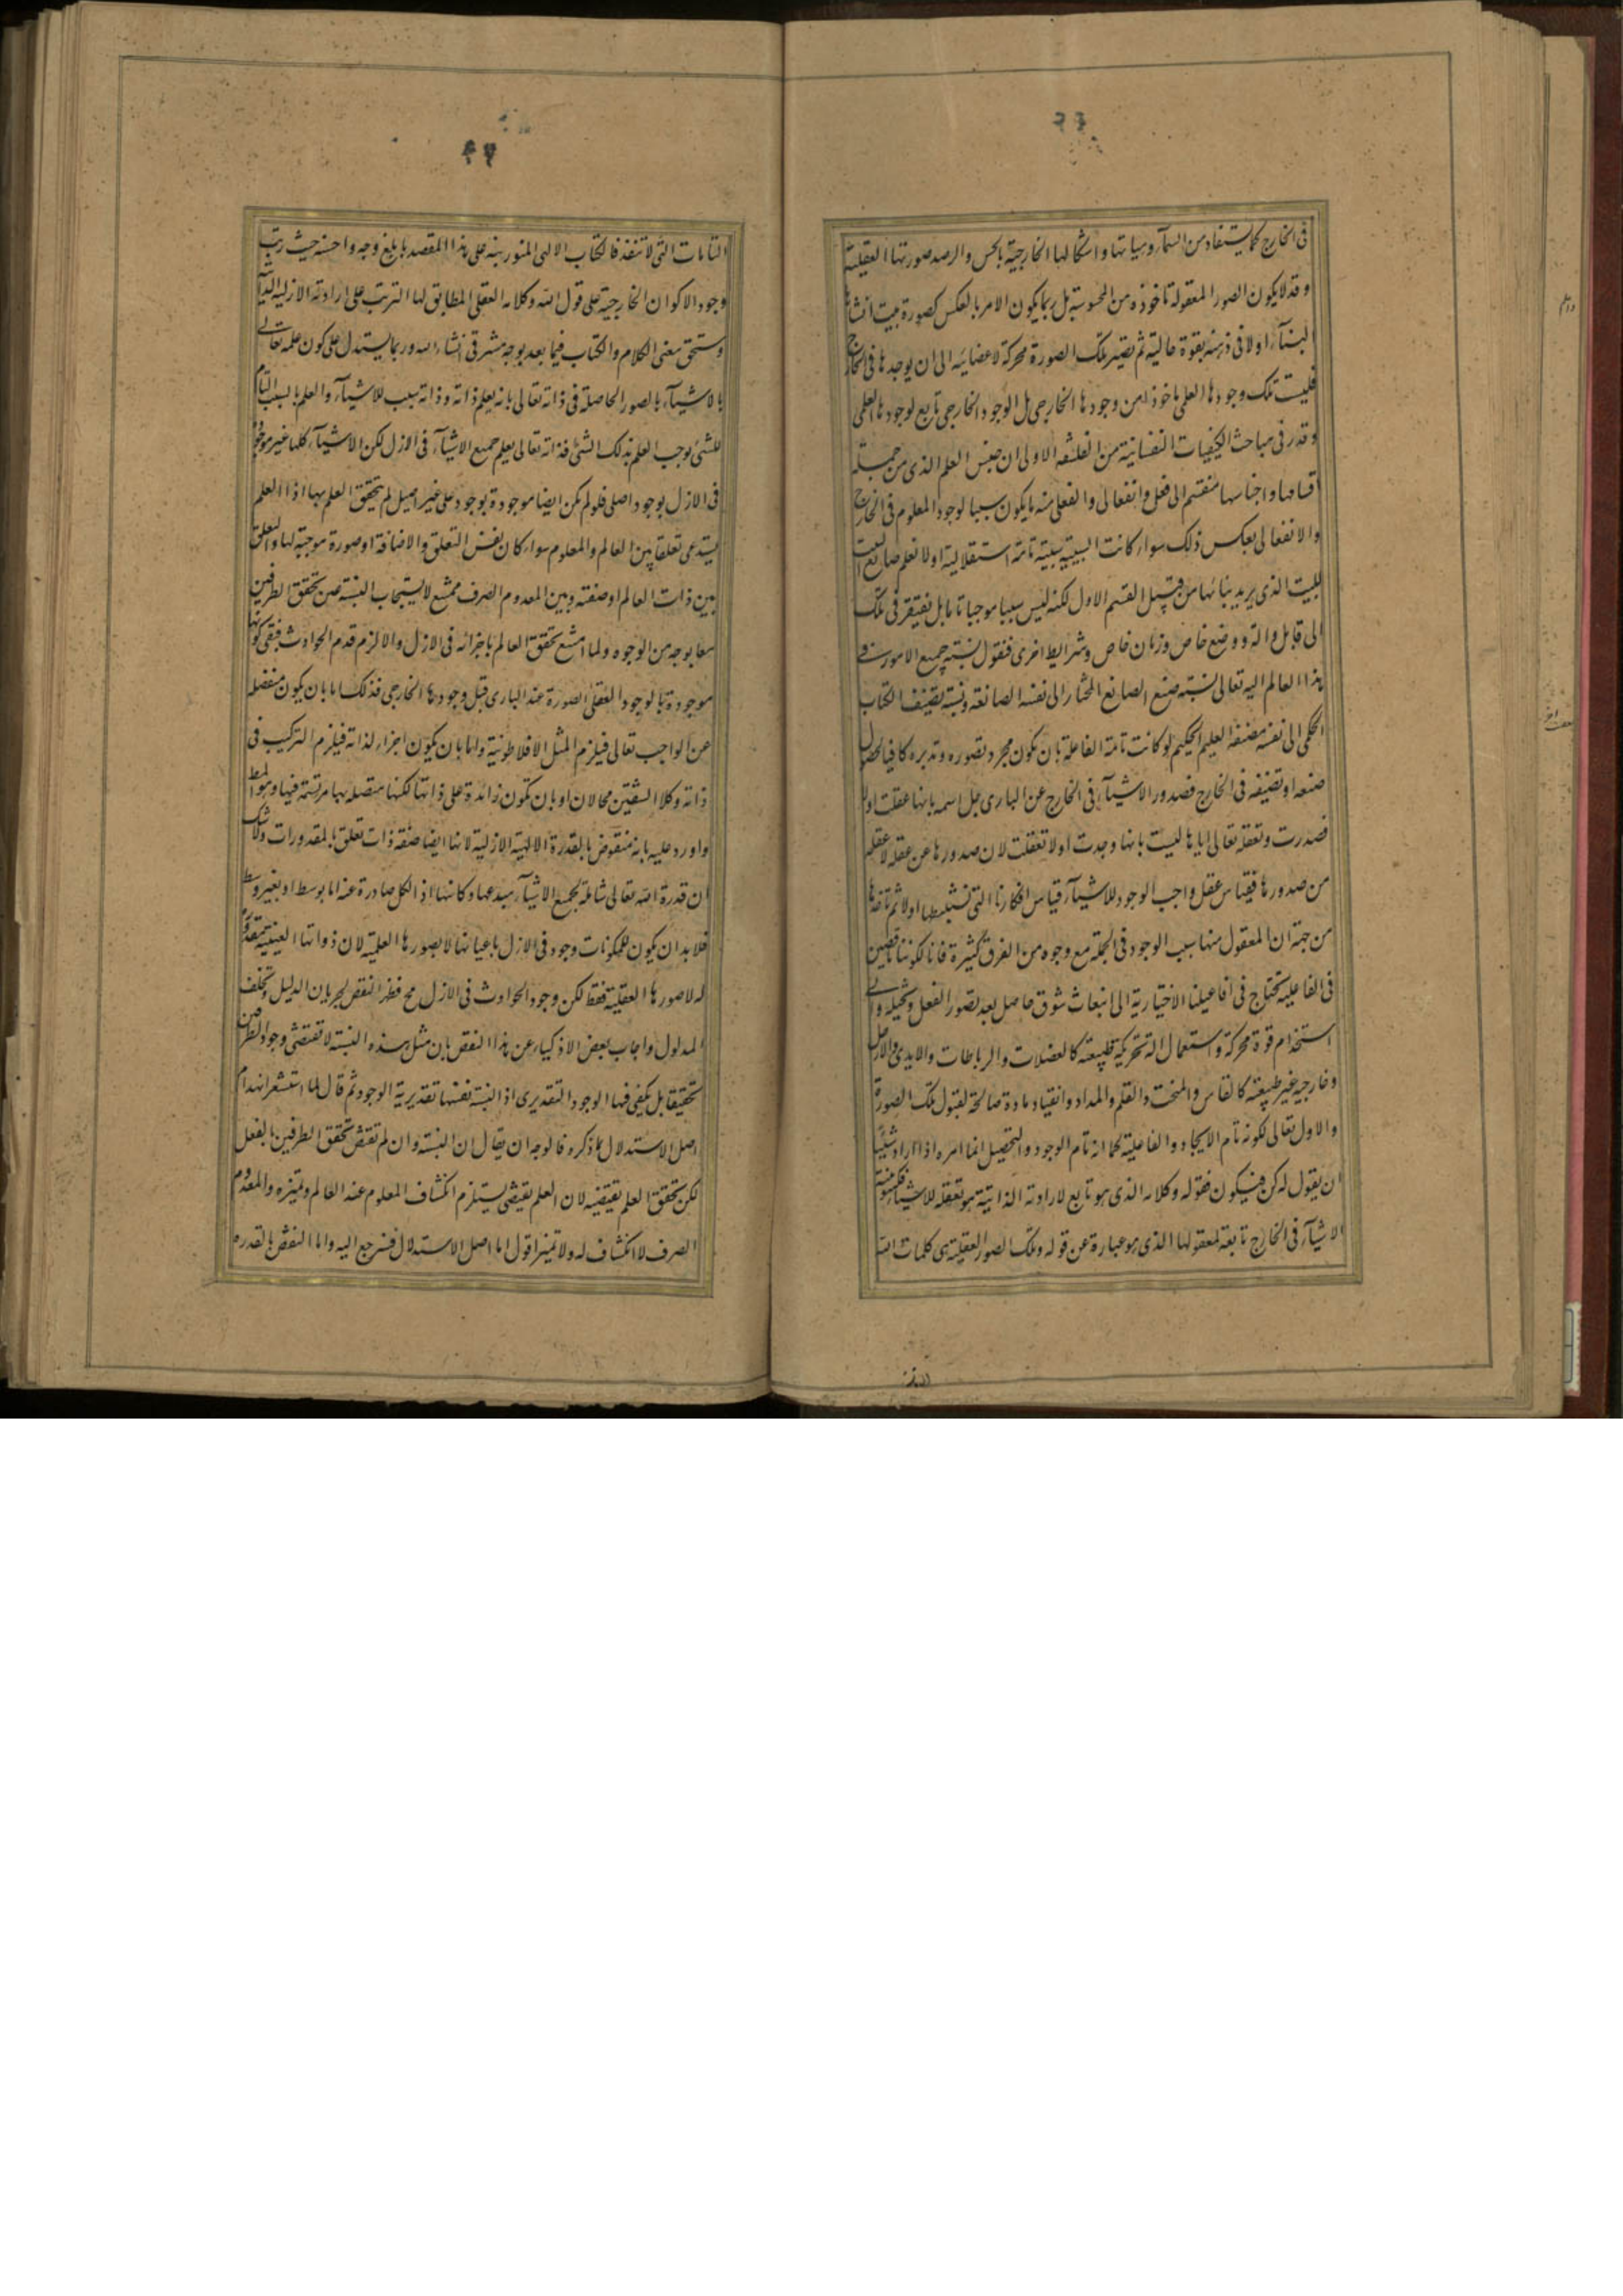 في الخارج كما يستفاد من السمآء وهيأتها واشكالها الخارجية بالحس والرصد صورتها العقلية
وقد لا يكون الصور المعقولة مأخوذه من المحسوسة بل ربما يكون الامر بالعكس كصورة بيت انشاها
البنآء اولا في ذهنه بقوة خيالية ثم تصير تلك الصورة محركة لاعضائه الى ان يوجدها في الخارج
فليست تلك وجودها العلمي ماخوذا من وجودها الخارجي بل الوجود الخارجي تابع لوجودها العلمي
وقد مر في مباحث الكيفيات النفسانية من الفلسفه الاولى ان جنس العلم الذي من جملة
اقسامها واجناسها منقسم الى فعلى وانفعالى والفعلى منه ما يكون سببا لوجود المعلوم في الخارج
والانفعالى بعكس ذلك سواء كانت السببية سببية تامة استقلالية اولا فعلم صانع البيت
للبيت الذي يريد بنائها من قبيل القسم الاول لكنه ليس سببا موجبا تاما بل يفتقر في تلك
الى قابل والة ووضع خاص وزمان خاص وشرايط اخرى فنقول نسبة جميع الامور في
هذا العالم اليه تعالى نسبة صنع الصانع المختار الى نفسه الصانعه ونسبة تصنيف الكتاب
الحكمى الى نفس مصنفه العليم الحكيم لو كانت تامة الفاعلة بان يكون مجرد تصوره وتدبره كافيا لحصول
صنعه او تصنيفه في الخارج فصدور الاشيآء في الخارج عن البارى جل اسمه بانها عقلت اولا
فصدرت وتعقله تعالى اياها ليست بانها وجدت اولا تعقلت لان صدورها عن عقله لا عقله
من صدورها فقياس عقل واجب الوجود للاشيآء قياس افكارنا التى نستنبطها اولا ثم نوجدها
من جهة ان المعقول منها سبب الوجود في الجملة مع وجوه من الفرق كثيرة فانا لكوننا ناقصين
في الفاعلية نحتاج في افاعيلنا الاختيارية الى انبعاث شوق حاصل بعد تصور الفعل وتخيله والى
استخدام قوة محركة واستعمال الة تحريكية طبيعته كالعضلات والرباطات والايدى والارجل
وخارجية غير طبيعته كالفاس والمنحت والقلم والمداد وانقياد مادة صالحة لقبول تلك الصورة
والاول تعالى لكونه تام الايجاد والفاعلية كما انه تام الوجود والتحصيل انما امره اذا اراد شيئا
ان يقول له كن فيكون فقوله وكلامه الذي هو تابع لارادته الذاتية هو تعقله للاشياء فكينونة
الاشيآء في الخارج تابعة لمعقولها الذي هو عبارة عن قوله وتلك الصور العقلية هى كلمات الله
التامات التى لا تنفد فالكتاب الالهى المنور ينبه على هذا المقصد بابلغ وجه واحسنه حيث رتب
وجود الاكوان الخارجية على قول الله وكلامه العقلى المطابق لها الترتب على ارادته الازلية
وستحق معنى الكلام والكتاب فيما بعد بوجه مشرقى انشاء الله وربما يستدل على كون علمه تعالى
بالاشيآء بالصور الحاصلة في ذاته تعالى بانه يعلم ذاته وذاته سبب للاشيآء والعلم بالسبب التام
للشئ يوجب العلم بذلك الشئ فذاته تعالى يعلم جميع الاشيآء في الازل لكن الاشيآء كلها غير موجودة
في الازل بوجود اصلى فلو لم يكن ايضا موجودة بوجود على غير اصيل لم يتحقق العلم بها اذا العلم
يستدعى تعلقا بين العالم والمعلوم سواء كان نفس التعلق والاضافة او صورة موجبة لها والتعلق
بين ذات العالم او صفته وبين المعدوم الصرف ممتنع لاستيجاب النسبة من تحقق الطرفين
معا بوجه من الوجوه ولما امتنع تحقق العالم باجزائه في الازل والا لزم قدم الحوادث فبقى كونها
موجودة بالوجود العقلى الصورة عند البارى قبل وجودها الخارجى فذلك اما بان يكون منفصلة
عن الواجب تعالى فيلزم المثل الافلاطونية واما بان يكون اجزاء لذاته فيلزم التركيب في
ذاته وكلا الشقين محالان او بان تكون زائدة على ذاتها لكنها متصلة بها مرتسمة فيها وهو المط
واورد عليه بانه منقوض بالقدرة الالهية الازلية لانها ايضا صفة ذات تعلق بالمقدورات ولا شك
ان قدرة الله تعالى شاملة لجميع الاشيآء مبدعها وكائنها اذ الكل صادرة عنه اما بوسط او بغير وسط
فلا بد ان يكون للمكونات وجود في الازل باعيانها لا بصورها العلمية لان ذواتها العينية مقدورة
له لا صورها العقلية فقط لكن وجود الحوادث في الازل مح فظهر النقض لجريان الدليل وتخلف
المدلول واجاب بعض الاذكياء عن هذا النقض بان مثل هذه النسبة لا تقتضى وجود الطرفين
تحقيقا بل يكفى فيها الوجود التقديرى اذ النسبة نفسها تقديرية الوجود ثم قال لما استشعر انهدام
اصل الاستدلال بما ذكره فالوجه ان يقال ان النسبة وان لم تقتض تحقق الطرفين بالفعل
لكن تحقق العلم يقتضيه لان العلم يقتضى يستلزم انكشاف المعلوم عند العالم وتميزه والمعدوم
الصرف لا انكشاف له ولا تميز اقول اما اصل الاستدلال فسنرجع اليه واما النقض بالقدره